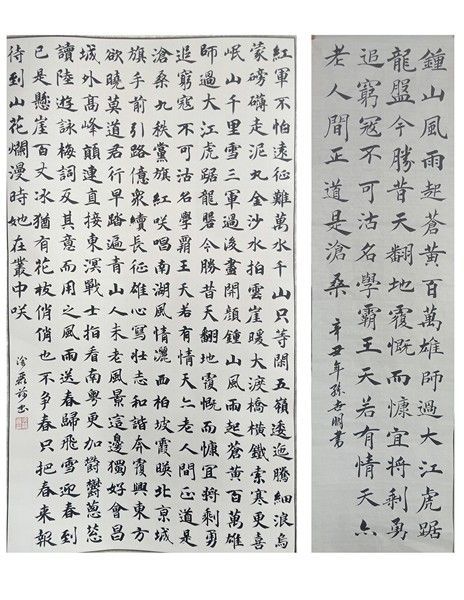 鍾山風雨起蒼黃百萬雄師過大江虎踞
龍盤今勝昔天翻地覆慨而慷宜將剩勇
追窮寇不可沽名學霸王天若有情天亦
老人間正道是滄桑 辛丑年孫書
紅軍不怕遠征難萬水千山只等閑五嶺逶迤騰細浪烏
蒙磅礴走泥丸金沙水拍雲崖暖大渡橋橫鐵索寒更喜
岷山千里雪三軍過後盡開顏鍾山風雨起蒼黃百萬雄
師過大江虎踞龍盤今勝昔天翻地覆慨而慷宜將剩勇
追窮寇不可沽名學霸王天若有情天亦老人間正道是
滄桑九秩黨旗紅咲唱南湖風情西柏坡霞映北京城
旗手前引路億衆續長征雄心寫壯志和諧奔復興東方
欲曉莫道君行早踏遍青山人未老風景這邊獨好會昌
城外高峰顛連直接東溟戰士指看南粵更加鬱鬱蔥蔥
讀陸遊詠梅詞反其意而用之風雨送春歸飛雪迎春到
已是懸崖百丈冰猶有花枝俏俏也不爭春只把春來報
待到山花爛漫時她在叢中咲